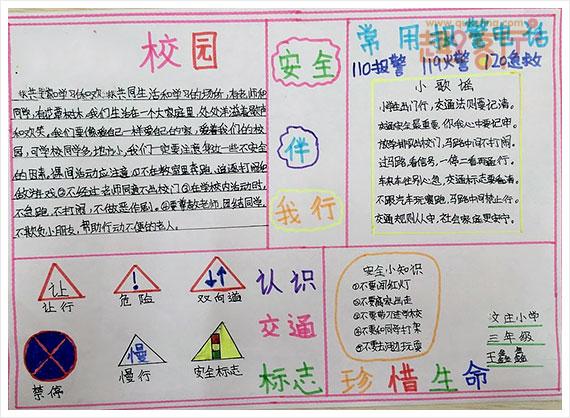 校园
安全
伴
我行
常用报警电话
110报警 119火警 120急救
小歌谣
小学生出门行,交通法则要记清。
交通安全最重要,你我心中要记牢。
按学排队出校门,马路中间不打闹。
过马路,看信号,一停二看再通行。
车来车往别心急,交通标志要看清。
不跟汽车玩赛跑,马路中间禁止行。
交通规则人人守,社会家庭更安宁。
同学,有花草树木,我们生活在一个大家庭里,处处洋溢着歌声
和欢笑,我们要像爱自己一样爱自己的家,爱着我们的校
园,可学校同学多,地方小,我们一定要注意身边一些不安全
的因素,课间活动应注意①不在教室里奔跑,追逐打闹和
做游戏②不经过老师同意不出校门③在学校内活动时,
不急跑,不打闹,不做恶作剧。④要尊敬老师,团结同学,
不欺负小朋友,帮助行动不便的老人。
让
让行
危险
双向道
禁停
慢
慢行
安全标志
认识
交通
标志
安全小知识
①不要闯红灯
②不要离家出走
③不要带刀进学校
④不要和同学打架
⑤不要去河边玩耍
珍惜生命
文庄小学
三年级
王鑫鑫